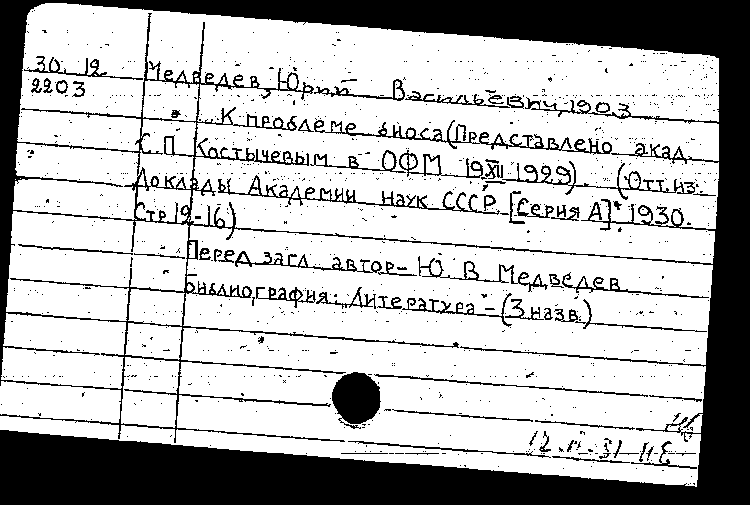 30. 12
2203
Медведев, Юрий Васильевич, 1903
К проблеме биоса (Представлено акад.
С.П. Костычевым в ОФМ 19 XII 1929). (Отт. из.
Доклады Академии наук СССР. [Серия А]. 1930.
Стр 12-16)
Перед загл. автор - Ю. В. Медведев
библиография: Литература - (3 назв.)
12.II.31 НЕ